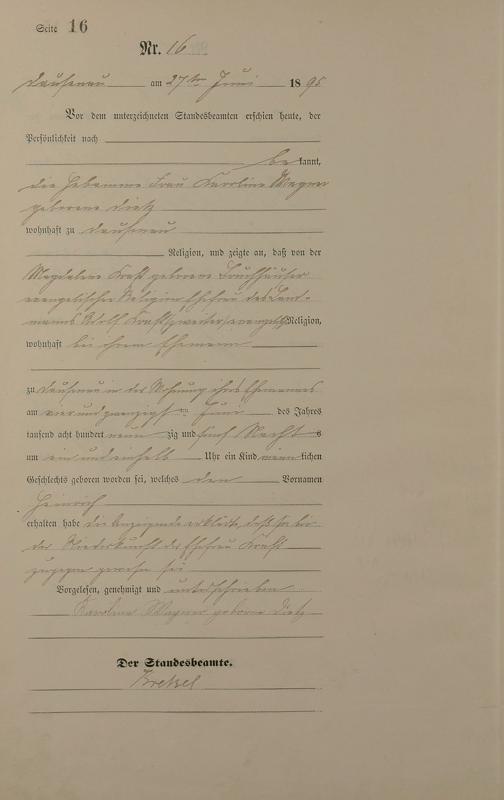 Seite 16
Nr. 16
Dausenau am 27ten Juni 1895
Vor dem unterzeichneten Standesbeamten erschien heute, der
Persönlichkeit nach
be kannt,
die Hebamme Frau Karoline Wagner
geborene Dietz
wohnhaft zu Dausenau
Religion, und zeigte an, daß von der
Magdalene Kraft geborene
evangelischer Religion, Ehefrau des Land-
manns Adolf Kraft Religion,
wohnhaft bei ihrem Ehemann
zu Dausenau in der Wohnung ihres Ehemannes
am vier und zwanzigsten Juni des Jahres
tausend acht hundert neun zig und fünf Nachts
um ein und einhalb Uhr ein Kind männlichen
Geschlechts geboren worden sei, welches den Vornamen
Heinrich
erhalten habe die Anzeigende erklärte, daß sie bei
der Niederkunft der Ehefrau Kraft
zugegen gewesen sei
Vorgelesen, genehmigt und unterschrieben
Karoline Wagner geborene Dietz
Der Standesbeamte.